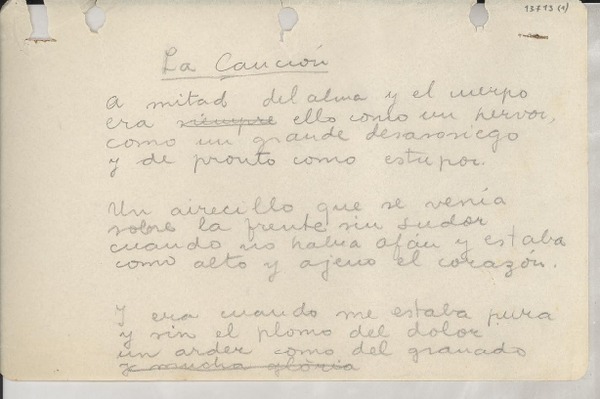 13713(1)
La Canción
A mitad del alma y el cuerpo
era siempre ello como un hervor,
como un grande desasosiego
y de pronto como estupor.
Un airecillo que se venía
sobre la frente sin sudor
cuando no había afán y estaba
como alto y ajeno el corazón.
Y era cuando me estaba pura
y sin el plomo del dolor
un arder como del granado
y mucha gloria